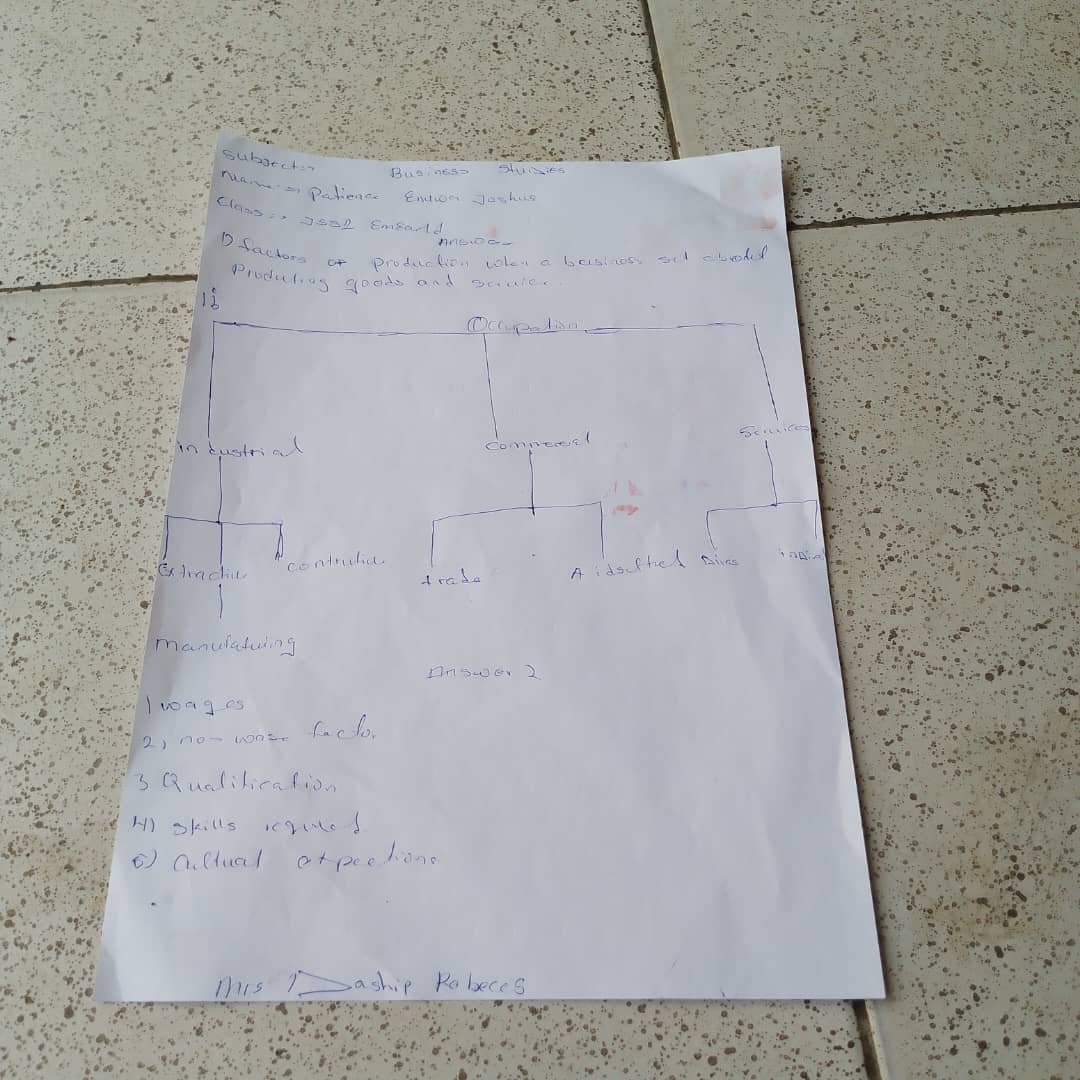 Subject:- Business Studies
Name:- Patience Enuwa Joshua
Class:- JSS2 Emearld
Answer
1) factors of production when a business set abroded
Produting goods and service.
1ii
Occupation
industrial commercial Services
Extractive contrutive trade Aidseftred Dires
manufaturing
Answer 2
1 wages
2, no- wase factor
3 Qualification
4) skills required
5) Cultual expections
Mrs Daship Rabeces